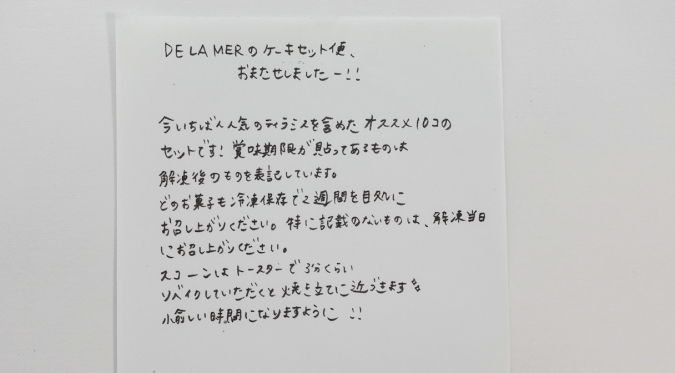 DE LA MERのケーキセット便、
おまたせしましたー!!
今いちばん人気のティラミスを含めたオススメ10コの
セットです!賞味期限が貼ってあるものは
解凍後のものを表記しています。
どのお菓子も冷凍保存で2週間を目処に
お召し上がりください。特に記載のないものは、解凍当日
にお召し上がりください。
スコーンはトースターで3分くらい
リベイクしていただくと焼き立てに近づきます
愉しい時間になりますように!!